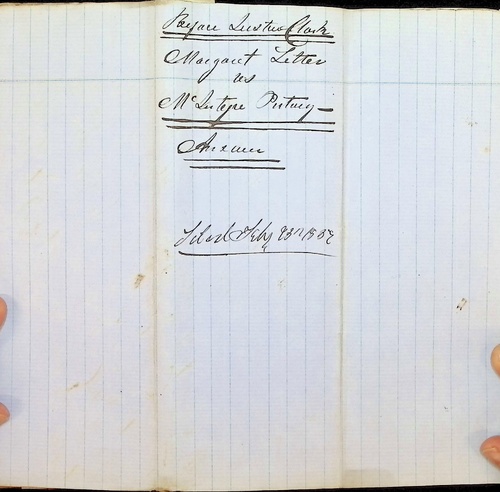 Justice Clark
Margaret Letter
vs
McIntyre Putney
Answer
Filed Feby 23rd 1857